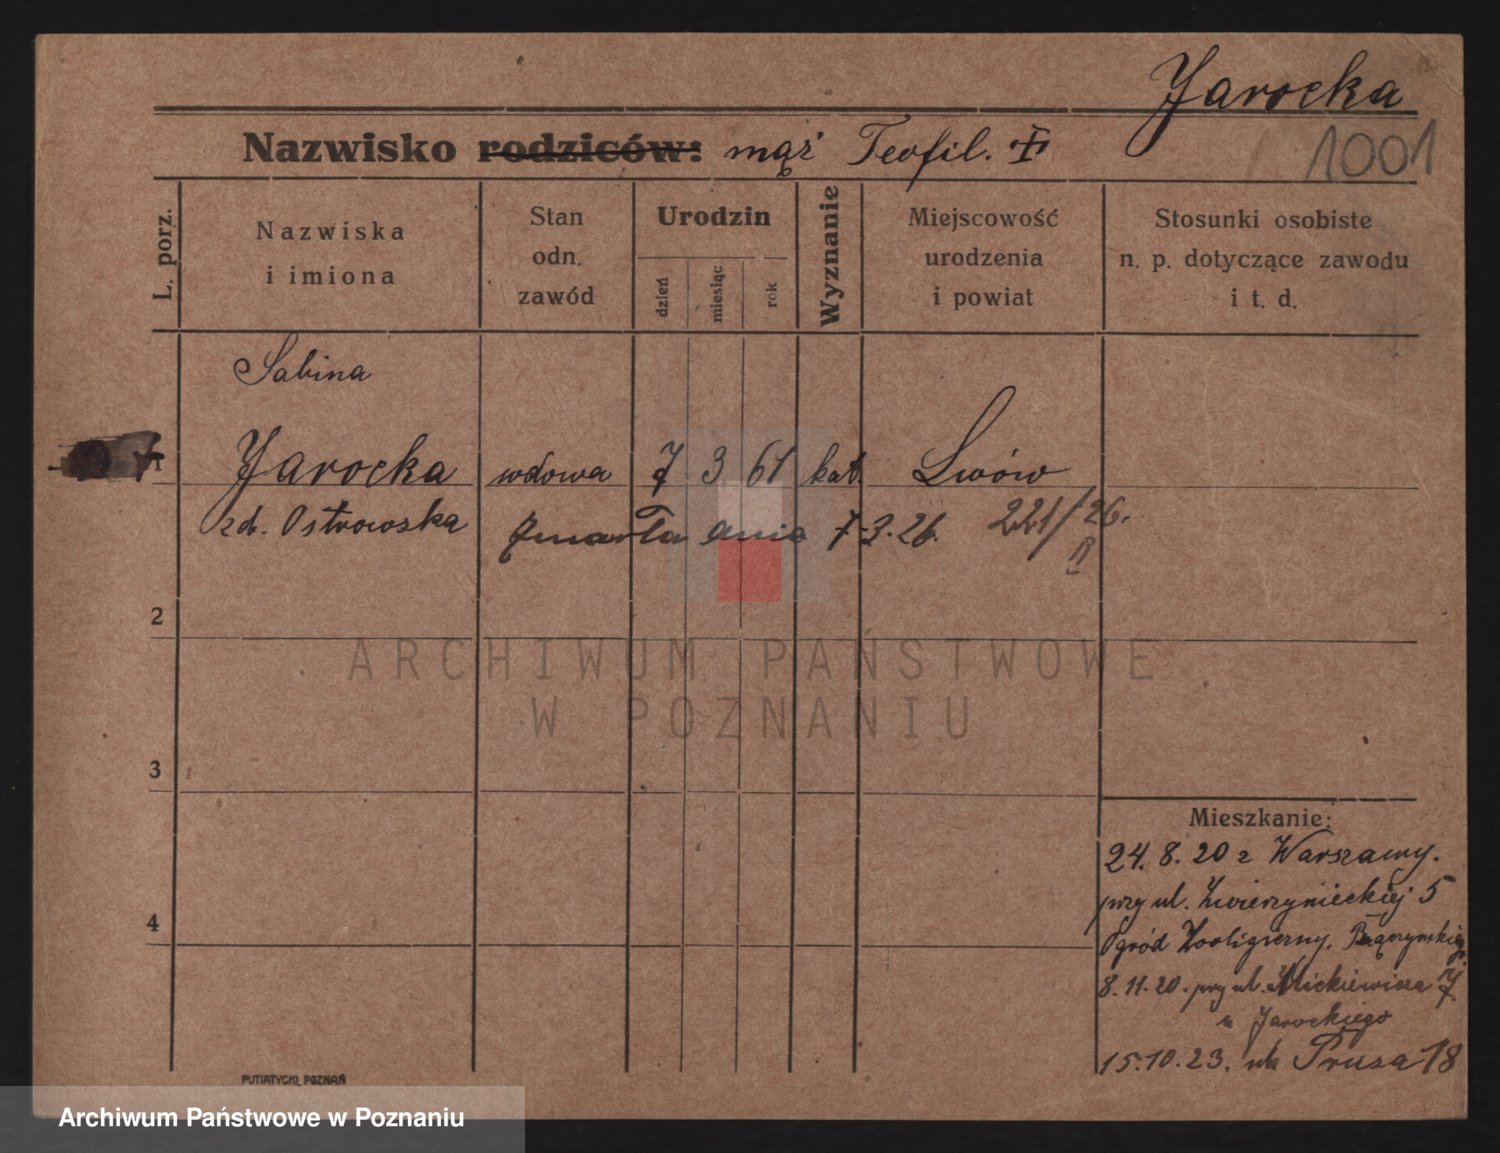 Jarocka
Nazwisko rodziców: mąż Teofil. †
1001
L. porz.
Nazwiska
i imiona
Stan
odn.
zawód
Urodzin
dzień
miesiąc
rok
Wyznanie
Miejscowość
urodzenia
i powiat
Stosunki osobiste
n. p. dotyczące zawodu
i t. d.
Sabina
1 Jarocka wdowa 7 3 61 kat. Lwów
zd. Ostrowska zmarła dnia 7.3.26. 221/26.
II
2
ARCHIWUM PAŃSTWOWE
W POZNANIU
3
Mieszkanie:
24. 8. 20 z Warszawy.
przy ul. Zwierzynieckiej 5
4
Ogród Zoologiczny.
8.11.20. przy ul. Mickiewicza 7
u Jarockiego
15.10.23. ul. Prusa 18
PUTIATYCKI, POZNAŃ
Archiwum Państwowe w Poznaniu